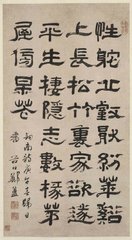 性躭丘壑厭紛華溪
上長松竹裏家欲遂
平生棲隱志數椽茅
屋傍花
谷口鄭簠